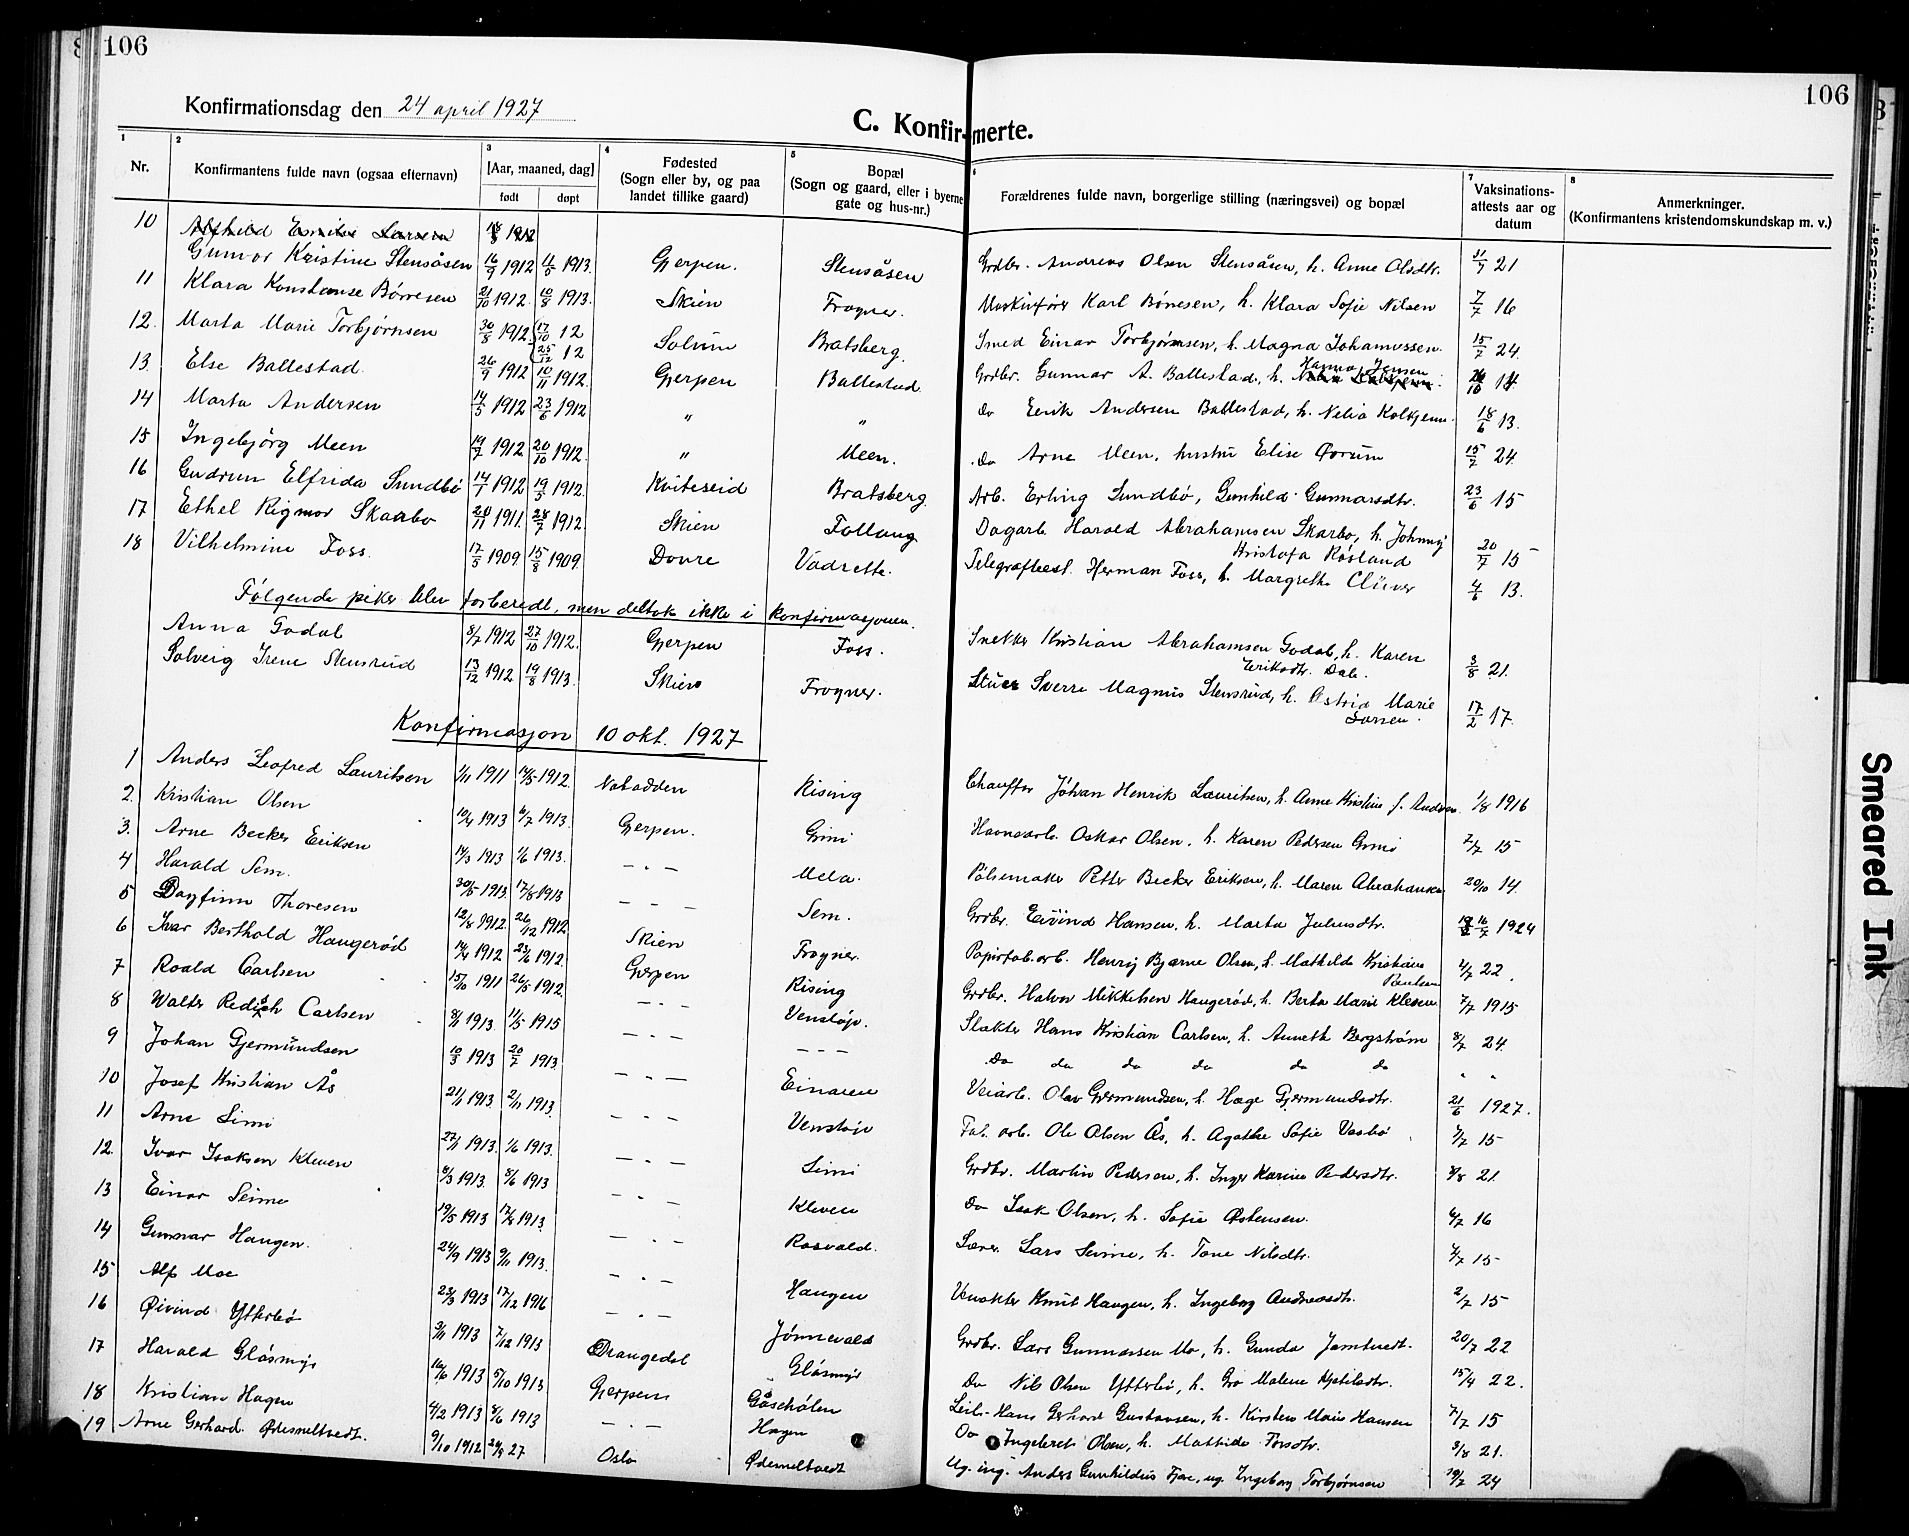 106
106
Konfirmationsdag den 24 april 1927
C. Konfirmerte.
1 2 3 4 5 6 7 8
Nr. Konfirmantens fulde navn (ogsaa efternavn) [Aar, maaned, dag] født døpt Fødested (Sogn eller by, og paa landet tillike gaard) Bopæl (Sogn og gaard, eller i byerne gate og hus-nr.) Forældrenes fulde navn, borgerlige stilling (næringsvei) og bopæl Vaksinations-attests aar og datum Anmerkninger. (Konfirmantens kristendomskundskap m. v.)
10 Alfhild Emilie Larsen 1912
Gunvor Kristine Stensåsen 16/9 1912 11/5 1913. Gjerpen. Stensåsen Grdbr. Andreas Olsen Stensåsen, h. Anne Olsdtr. 21
11 Klara Konstanse Børresen 21/10 1912. 10/8 1913. Skien Frogner. Maskinfører Karl Børresen, h. Klara Sofie Nilsen 7/7 16
12. Marta Marie Torbjørnsen 30/8 1912. 17/10 12 25/12 12 Solum Bratsberg. Smed Einar Torbjørnsen, h. Magna Johannessen. 15/7 24.
13. Else Ballestad. 26/9 1912 10/11 1912. Gjerpen Ballestad Grdbr. Gunnar A. Ballestad, h. Hanna Jensen 14
14 Marta Andersen 14/5 1912 23/6 1912 " " Do Eerik Andersen Ballestad, h. Nelia Kolkjenn. 18/6 13.
15 Ingebjørg Meen 19/7 1912 20/10 1912. " Meen. Do Arne Meen, hustru Elise Ørum 15/7 24.
16 Gudrun Elfrida Sundbø 14/1 1912 19/5 1912. Kviteseid Bratsberg. Arb. Erling Sundbø, Gunhild Gunnarsdtr. 23/6 15
17 Ethel Rigmor Skaarbo 20/11 1911. 28/7 1912. Skien Follaug Dagarb. Harald Abrahamsen Skarbo, h. Johnny Kristofa Røsland 20/7 15
18 Vilhelmine Foss. 17/5 1909 15/8 1909. Dovre Vadrette. Telegrafbest. Herman Foss, h. Margrethe Clüver 4/6 13.
Følgende piker blev forberedt, men deltok ikke i konfirmasjonen.
Anna Godal 8/7 1912 27/10 1912. Gjerpen Foss. Snekker Kristian Abrahamsen Godal, h. Karen Eriksdtr. Dale. 3/8 21.
Solveig Irene Stensrud 13/12 1912 19/8 1913. Skien Frogner. Stuer Sverre Magnus Stensrud, h. Astrid Marie Larsen. 17/2 17.
Konfirmasjon 10 okt. 1927
1 Anders Leofred Lauritsen 1/11 1911 14/5 1912. Notodden Rising Chauffør Johan Henrik Lauritsen, h. Anne Kristine f. Andersen 1/8 1916
2. Kristian Olsen 10/4 1913 6/7 1913. Gjerpen. Grini Havnearb. Oskar Olsen, h. Karen Pedersen Grini 2/7 15
3. Arne Becker Eriksen 14/3 1913 1/6 1913. — . — Mela. Pølsemaker Petter Becker Eriksen, h. Maren Abrahamsen 20/10 14
4 Harald Sem. 30/5 1913. 17/8 1913 — . — Sem. Grdbr. Eivind Hansen, h. Marta Juliusdtr. 16/7 1924
5 Dagfinn Thoresen 12/8 1912. 26/12 1912 Skien Frogner. Papirfab.arb. Henrij Bjarne Olsen, h. Mathilde Kristine Paulsen 4/7 22.
6 Ivar Berthold Haugerød 14/4 1912 23/6 1912. Gjerpen Rising Grdbr. Halvor Mikkelsen Haugerød, h. Berta Marie Kleven 7/7 1915
7 Roald Carlsen 15/10 1911 26/5 1912. — . — Venstøp. Slakter Hans Kristian Carlsen, h. Anneth Bergstrøm 8/7 24.
8 Walter Redisch Carlsen 8/11 1913. 11/5 1915 — . — — — — Do do do do do do " "
9 Johan Gjermundsen 10/3 1913 20/7 1913. — . — Einaren Veiarb. Olav Gjermundsen, h. Hæge Gjermundsdtr. 21/6 1927.
10 Josef Kristian Ås 21/1 1913. 2/11 1913. — . — Venstøp Fab. arb. Ole Olsen Ås, h. Agathe Sofie Vasbø 7/7 15
11 Arne Limi 27/1 1913. 1/6 1913. — . — Limi Grdbr. Martin Pedersen, h. Inger Karine Pedersdtr. 8/8 21.
12. Ivar Isaksen Kleven 6/3 1913. 8/6 1913 — . — Kleven Do Isak Olsen, h. Sofie Østensen. 6/7 16
13 Einar Seime 19/5 1913 17/8 1913. — . — Rosvald. Lærer Lars Seime, h. Tone Nilsdtr. 7/7 15
14 Gunnar Haugen. 24/9 1913 9/11 1913. — . — Haugen Vognkter Knut Haugen, h. Ingeborg Andreasdtr. 2/7 15
15 Alf Moe 23/3 1913 17/12 1916 — . — Jønnevald Grdbr. Lars Gunnarsen Mo, h. Gunda Jamtvedt. 20/7 22
16 Øivind Ytterbø 3/11 1913 7/12 1913 Drangedal Gløsmyr Do Nils Olsen Ytterbø, h. Gro Malene Kjetilsdtr. 15/4 22.
17 Harald Gløsmyr 16/6 1913 5/10 1913 Gjerpen Gåscholen Leil. Hans Gerhard Gustavsen, h. Kirsten Marie Hansen 7/7 15
18 Kristian Hagen 4/2 1913 8/6 1913 — . — Hagen Do Ingebret Olsen, h. Mathilde Torsdtr. 3/8 21.
19 Arne Gerhard Ødesneltvedt. 9/10 1912 27 Oslo Ødesneltvedt Ug. ing. Anders Gunhildius Fjære, ug. Ingeborg Torbjørnsen 19/7 24
Smeared Ink